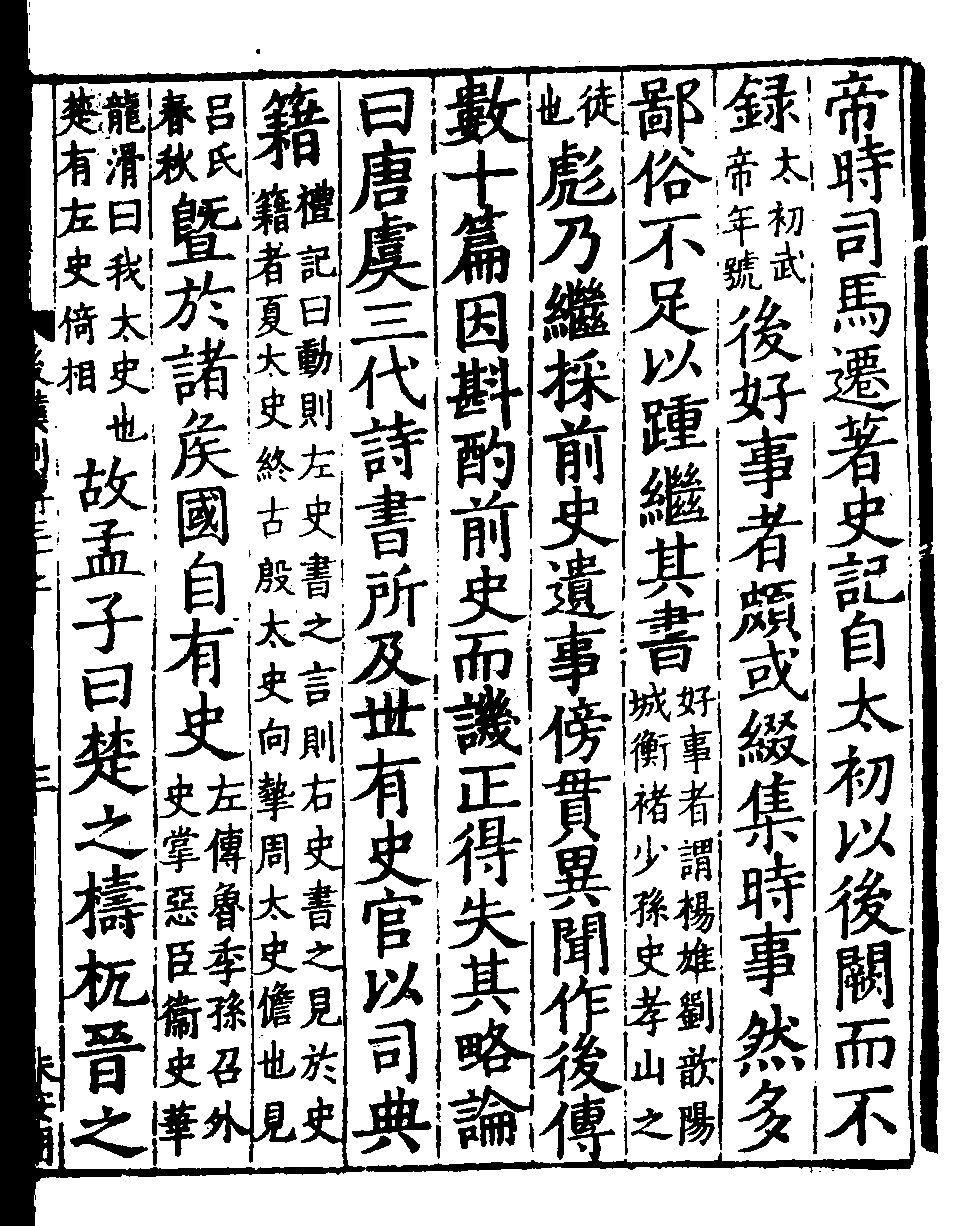 帝時司馬遷著史記自太初以後闕而不
録太初武帝年號後好事者頗或綴集時事然多
鄙俗不足以踵繼其書好事者謂楊雄劉歆陽城衡褚少孫史孝山之
徒也彪乃繼採前史遺事傍貫異聞作後傳
數十篇因斟酌前史而譏正得失其略論
曰唐虞三代詩書所及世有史官以司典
籍禮記曰動則左史書之言則右史書之見於史籍者夏太史終古殷太史向摯周太史儋也見
呂氏春秋暨於諸矦國自有史左傳魯季孫召外史掌惡臣衞史華
龍滑曰我太史也楚有左史倚相故孟子曰楚之檮杌晉之